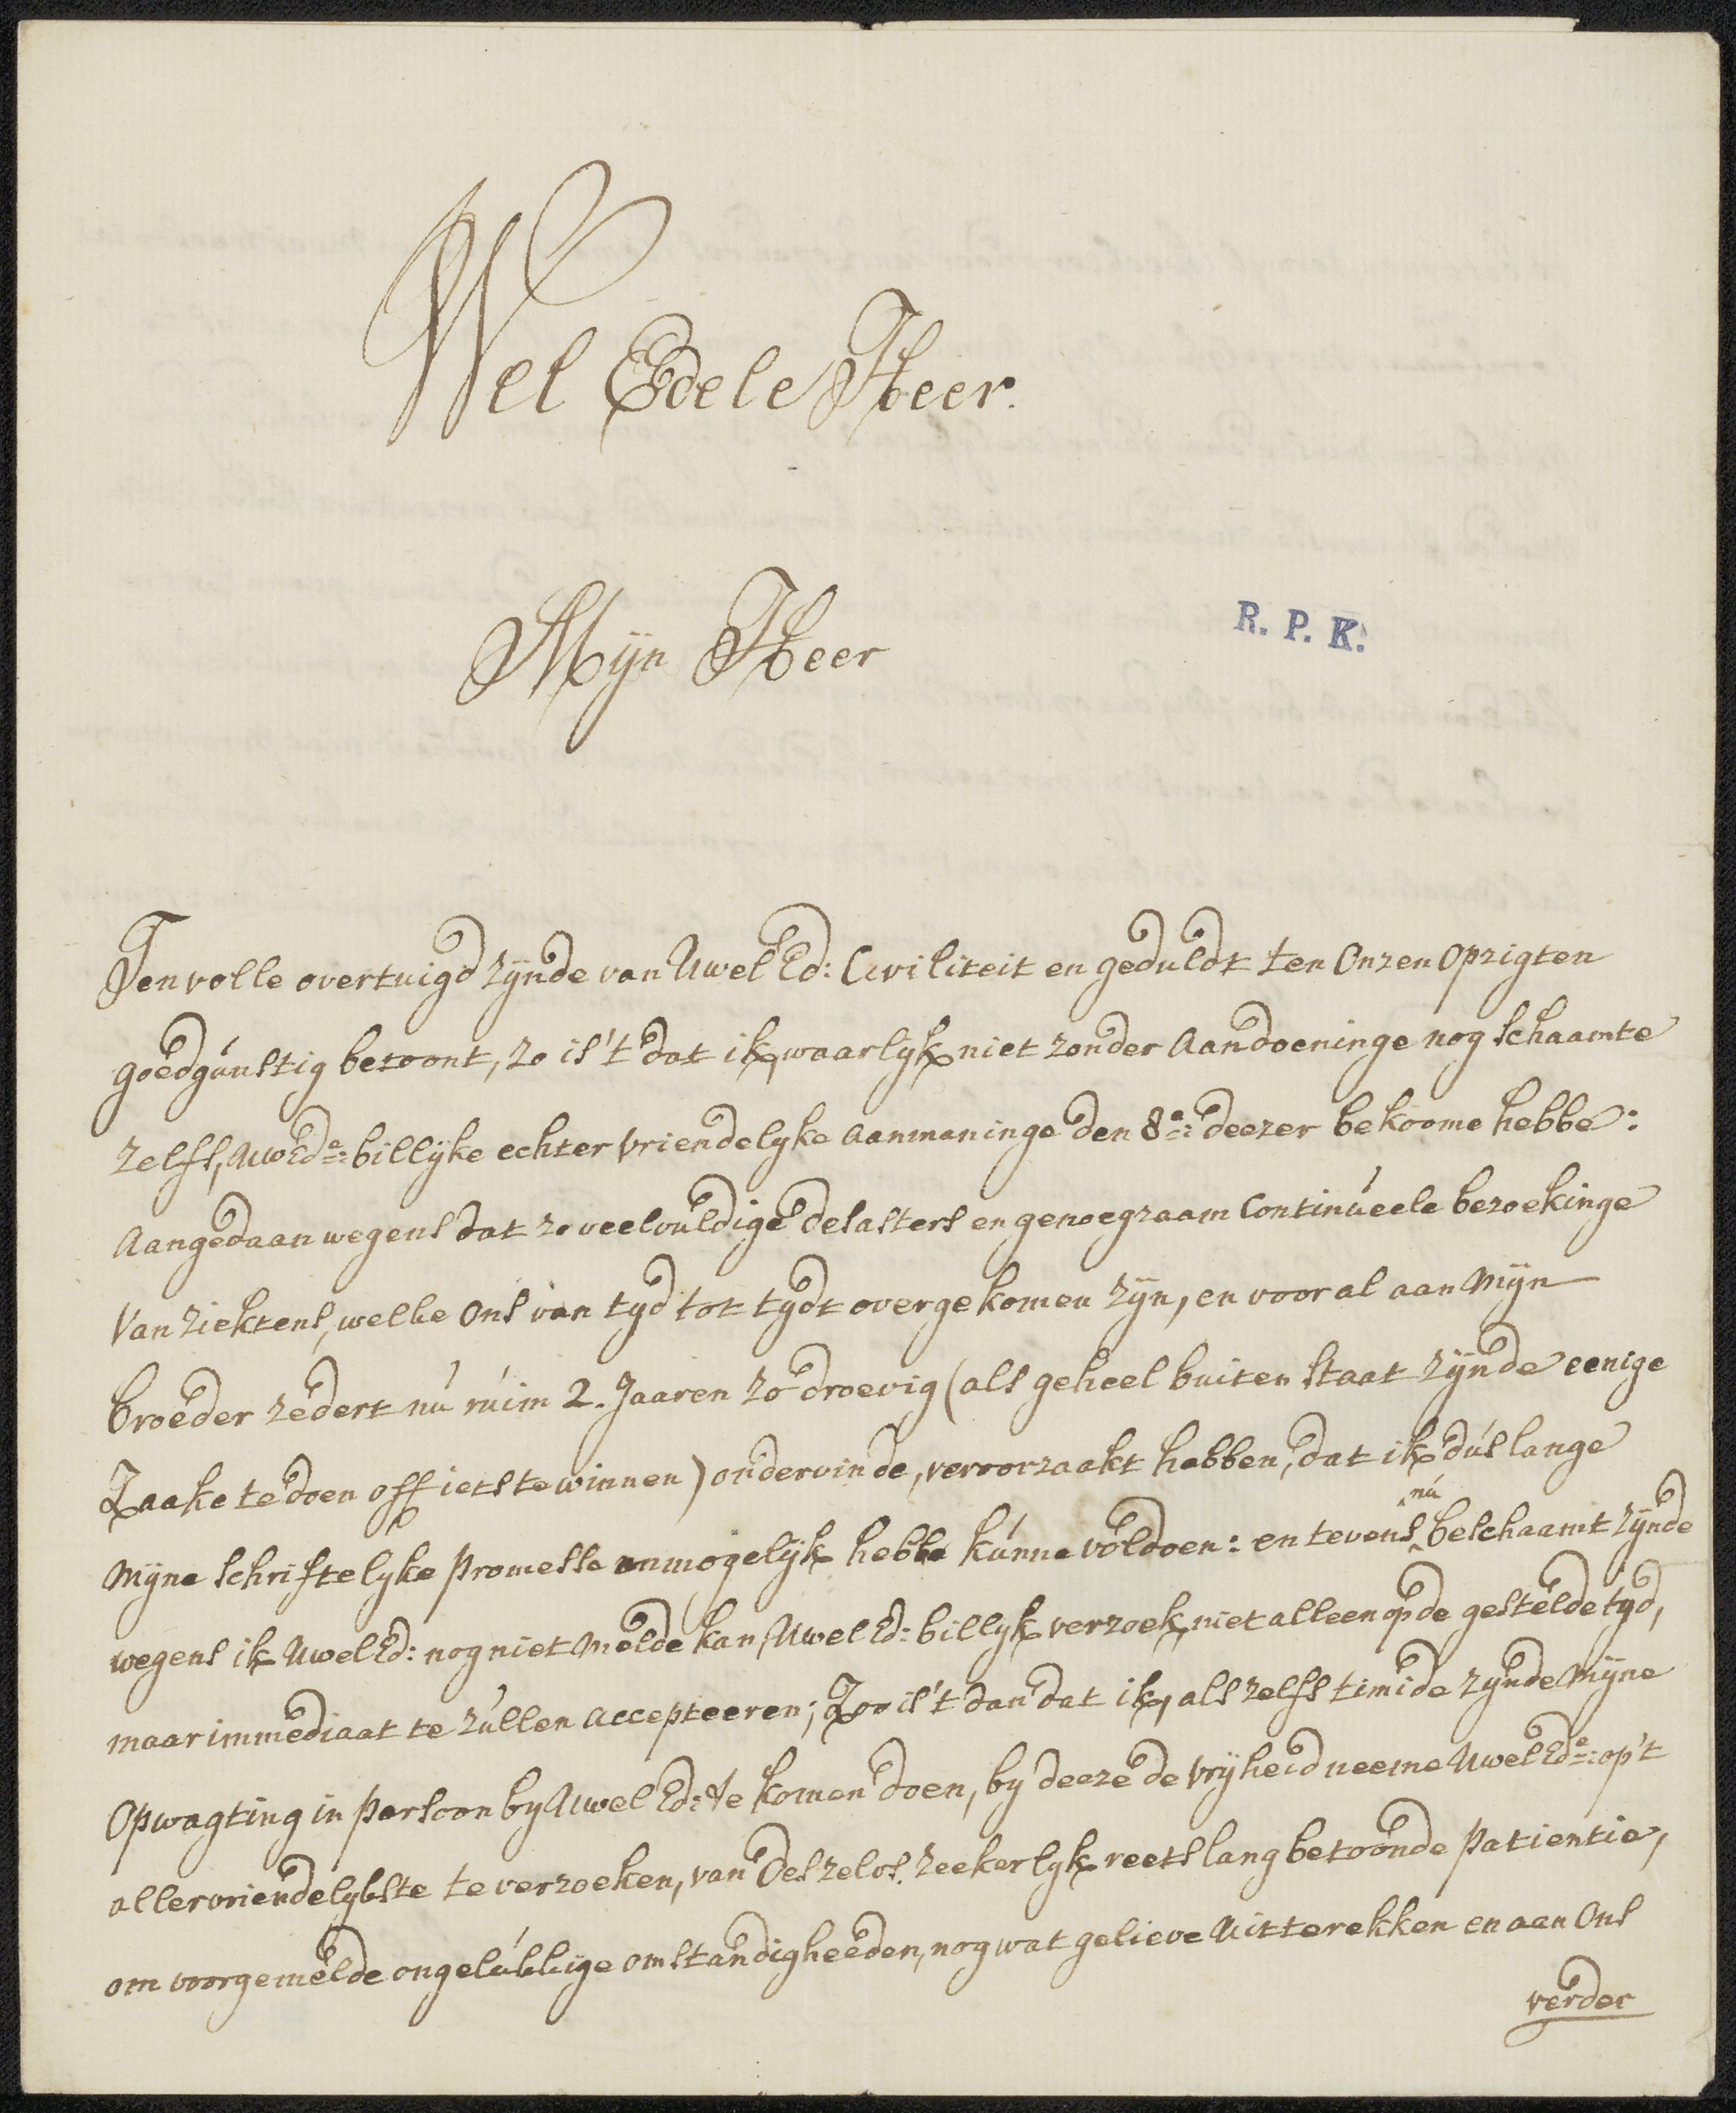 Wel Edele Heer.
Mijn Heer
R. P. K.
Ten volle overtuigd zijnde van Uwel Ed: Civiliteit en geduldt ten Onzen Opzigten
goedgunstig betoont, zo is 't dat ik, waarlyk niet zonder Aandoeninge nog schaamte
zelfs, UwEde: billijke echter vriendelyke Aanmaninge den 8e: deezer bekoome hebbe:
Aangedaan wegens dat zo veelvuldige desasters en genoegzaam Continueele bezoekinge
Van ziektens, welke Ons van tyd tot tydt overgekomen zijn, en vooral aan Mijn
broeder zedert nu ruim 2. Jaaren zo droevig (als geheel buiten staat zijnde eenige
Zaake te doen off iets te winnen) ondervinde, veroorzaakt hebben, dat ik dus lange
Mijne schriftelyke Promesse onmogelijk hebbe kunne voldoen: en tevens nu beschaamt zijnde
wegens ik Uwel Ed: nog niet melde kan, Uwel Ed: billyk verzoek, niet alleen op de gestelde tyd,
maar immediaat te zullen Accepteeren; Zoo is't dan dat ik, als zelfs timide zijnde Mijne
Opwagting in Persoon by Uwel Ed: te komen doen, by deeze de vrijheid neeme Uwel Ede: op't
allervriendelykste te verzoeken, van Deszelvs zeekerlyk reets lang betoonde Patientie,
om voorgemelde ongelukkige omstandigheeden, nog wat gelieve Uitterekken en aan Ons
verder